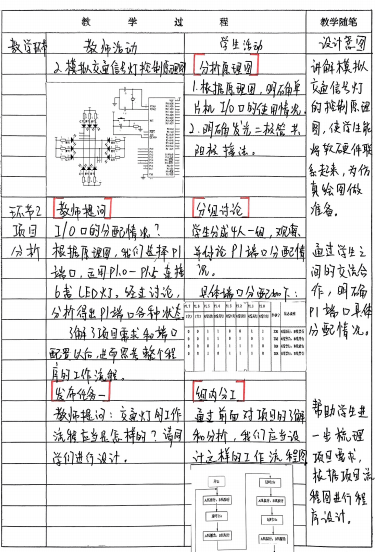 教 学 过 程
教学随笔
教学环节
教师活动
学生活动
设计意图
2.模拟交通信号灯控制原理图
分析原理图
1.根据原理图,明确单
片机I/O口的使用情况。
2.明确发光二极管共
阳极接法。
讲解模拟
交通信号灯
的控制原理
图,使学生能
将软硬件联
系起来,为仿
真绘图做
准备。
环节2
项目
分析
教师提问
I/O口的分配情况?
根据原理图,我们选择P1
端口,运用P1.0—P1.5直接
6盏LED灯。经过讨论,
分析得出P1端口各种状态
了解了项目需求和端口
配置以后,进而思考整个程
序的工作流程。
发布任务一
教师提问:交通灯的工作
流程应当是怎样的?请同
学们进行设计。
分组讨论
学生分成4人一组,观察
并讨论P1端口分配情
况。
具体端口分配如下:
组内分工
通过前面对项目的了解
和分析,我们应当设
计这样的工作流程图
通过学生之
间的交流合
作,明确
P1端口具体
分配情况。
帮助学生进
一步梳理
项目需求,
根据项目流
程图进行程
序设计。